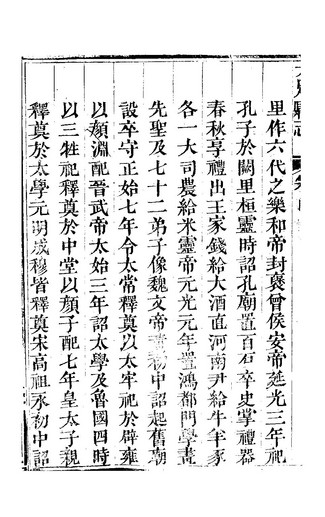 里作六代之樂和帝封褒曾侯安帝延光三年祀
孔子於闕里桓靈時詔孔廟置百石卒史掌禮器
春秋享禮出王家錢給大酒直河南尹給牛羊豕
各一大司農給米靈帝元光元年置鴻都門學畫
先聖及七十二弟子像魏文帝黃初中詔起舊廟
設卒守正始七年令太常釋奠以太牢祀於辟雍
以顏淵配晉武帝太始三年詔太學及魯國四時
以三牲祀釋奠於中堂以顏子配七年皇太子親
釋奠於太學元明成穆皆釋奠宋高祖永初中詔